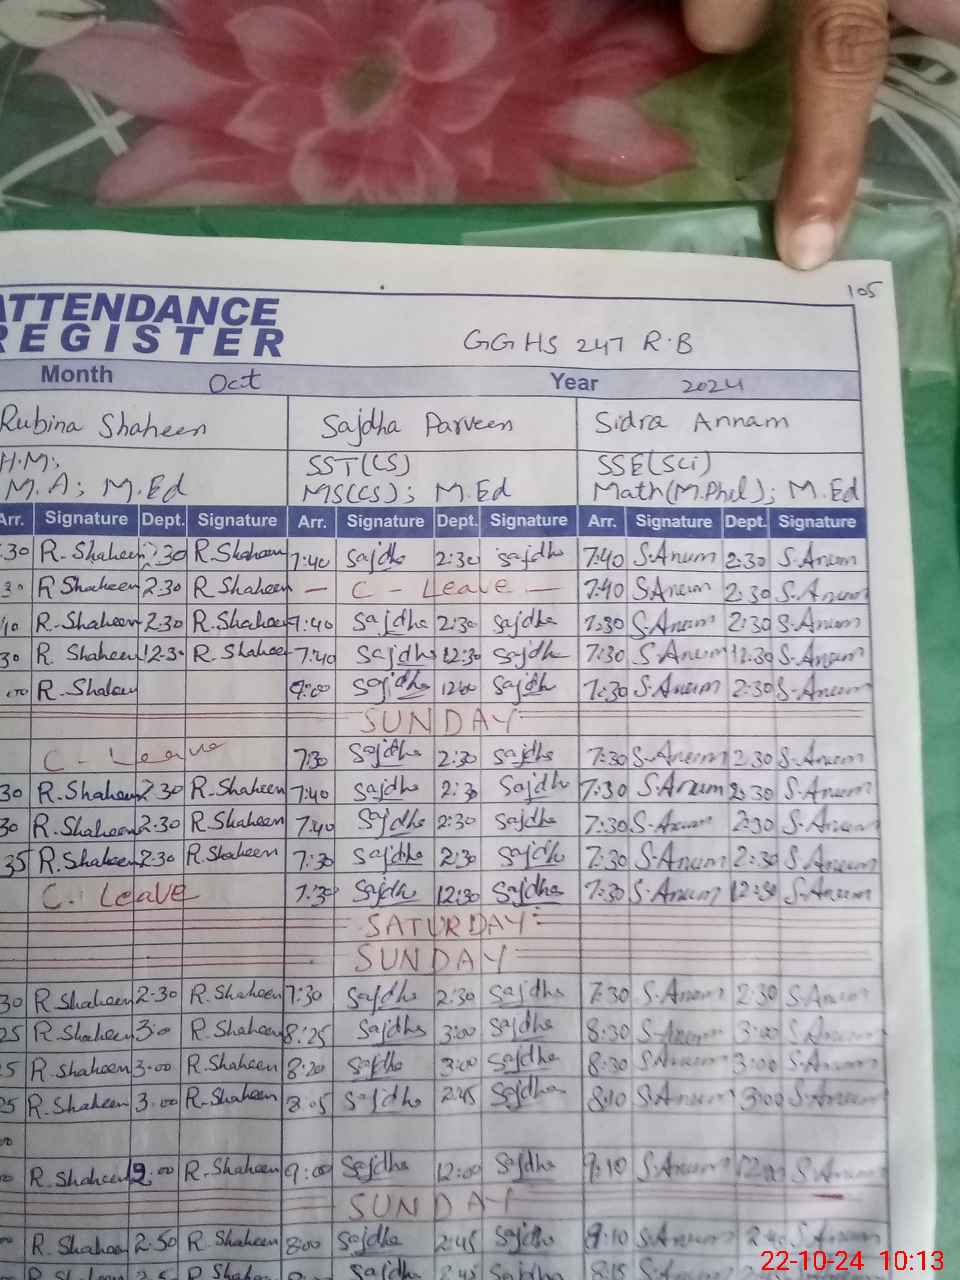 105
ATTENDANCE
REGISTER GGHS 247 R.B
Month Oct Year 2024
Rubina Shaheen Sajdha Parveen Sidra Annam
H.M; SST(CS) SSE(Sci)
M.A; M.Ed MS(CS); M.Ed Math(M.Phil); M.Ed
Arr. Signature Dept. Signature Arr. Signature Dept. Signature Arr. Signature Dept. Signature
30 R.Shaheen 2:30 R.Shaheen 7:40 Sajdha 2:30 Sajdha 7:40 S.Anum 2:30 S.Anum
30 R Shaheen 2:30 R Shaheen — C - Leave — 7:40 S.Anum 2:30 S.Anum
R.Shaheen 2:30 R.Shaheen 7:40 Sajdha 2:30 Sajdha 7:30 S.Anum 2:30 S.Anum
30 R. Shaheen 12:30 R.Shaheen 7:40 Sajdha 12:30 Sajdha 7:30 S.Anum 12:30 S.Anum
R.Shaheen 9:00 Sajdha Sajdha 7:30 S.Anum 2:30 S.Anum
SUNDAY
C - Leave 7:30 Sajdha 2:30 Sajdha 7:30 S.Anum 2:30 S.Anum
30 R.Shaheen 2:30 R.Shaheen 7:40 Sajdha 2:30 Sajdha 7:30 S.Anum 2:30 S.Anum
30 R.Shaheen 2:30 R.Shaheen 7:40 Sajdha 2:30 Sajdha 7:30 S.Anum 2:30 S.Anum
35 R.Shaheen 2:30 R.Shaheen 7:30 Sajdha 2:30 Sajdha 7:30 S.Anum 2:30 S.Anum
C. Leave 7:30 Sajdha 12:30 Sajdha 7:30 S.Anum 12:30 S.Anum
SATURDAY
SUNDAY
30 R.Shaheen 2:30 R.Shaheen 7:30 Sajdha 2:30 Sajdha 7:30 S.Anum 2:30 S.Anum
25 R.Shaheen 3:00 R.Shaheen 8:25 Sajdha 3:00 Sajdha 8:30 S.Anum 3:00 S.Anum
5 R.Shaheen 3:00 R.Shaheen 8:20 Sajdha 3:00 Sajdha 8:30 S.Anum 3:00 S.Anum
25 R.Shaheen 3:00 R.Shaheen 8:05 Sajdha 2:45 Sajdha 8:10 S.Anum 3:00 S.Anum
00
R.Shaheen 12:00 R.Shaheen 9:00 Sajdha 12:00 Sajdha 9:10 S.Anum 12:00 S.Anum
SUNDAY
R.Shaheen 2:50 R.Shaheen 8:00 Sajdha 2:45 Sajdha 8:10 S.Anum S.Anum
R.Shaheen R.Shaheen Sajdha 2:45 Sajdha 8:15 S.Anum
22-10-24 10:13